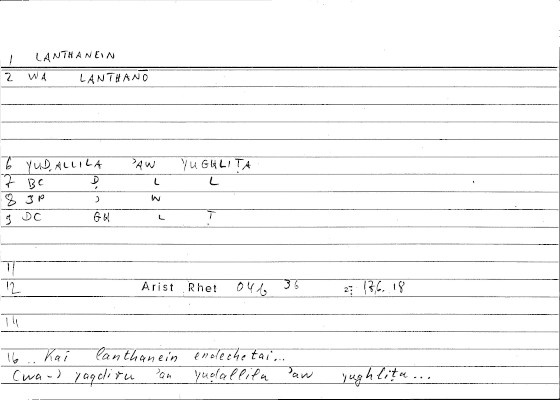 1 LANTHANEIN
2 WA LANTHANŌ
6 YUḌALLILA ʾAW YUGHLIṬA
7 BC Ḍ L L
8 JP ʾ W
9 DC GH L Ṭ
11
12 Arist Rhet 04b 36 = 136.18
14
16 .. Kai lanthanein endechetai...
(wa-) yaqdiru ʾan yuḍallila ʾaw yughliṭa...